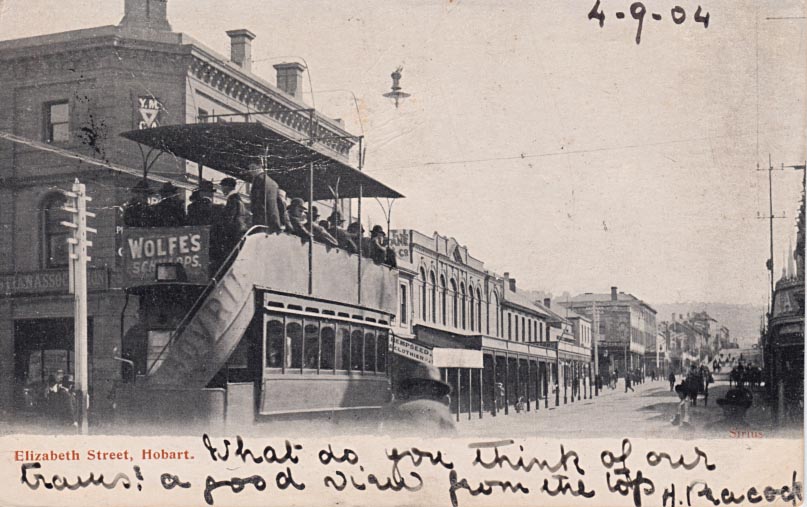 4-9-04
Y.M
C.A
WOLFES
SCHNAPPS.
DEMPSEY
CLOTHIER
Sirius
Elizabeth Street, Hobart. What do you think of our
trams! a good view from the top H. Peacock